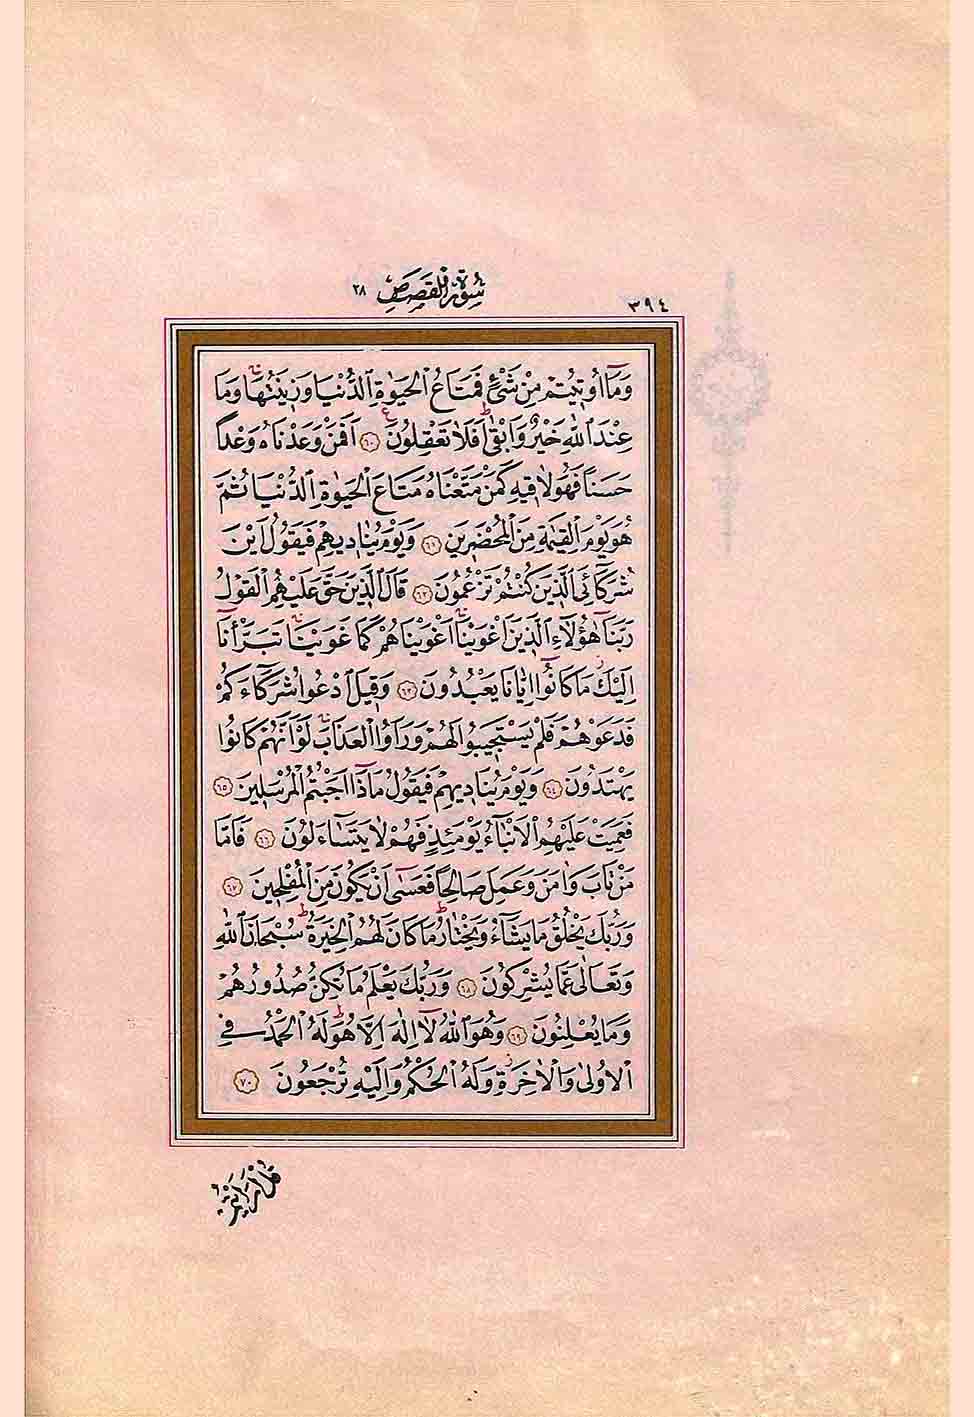 سُورَةُ الْقَصَصِ ٢٨
٣٩٤
وَمَٓا اُو۫ت۪يتُمْ مِنْ شَيْءٍ فَمَتَاعُ الْحَيٰوةِ الدُّنْيَا وَز۪ينَتُهَاۚ وَمَا
عِنْدَ اللّٰهِ خَيْرٌ وَاَبْقٰىۜ اَفَلَا تَعْقِلُونَ۟ ﴿٦٠﴾ اَفَمَنْ وَعَدْنَاهُ وَعْداً
حَسَناً فَهُوَ لَاق۪يهِ كَمَنْ مَتَّعْنَاهُ مَتَاعَ الْحَيٰوةِ الدُّنْيَا ثُمَّ
هُوَ يَوْمَ الْقِيٰمَةِ مِنَ الْمُحْضَر۪ينَ ﴿٦١﴾ وَيَوْمَ يُنَاد۪يهِمْ فَيَقُولُ اَيْنَ
شُرَكَٓائِيَ الَّذ۪ينَ كُنْتُمْ تَزْعُمُونَ ﴿٦٢﴾ قَالَ الَّذ۪ينَ حَقَّ عَلَيْهِمُ الْقَوْلُ
رَبَّنَا هٰٓؤُ۬لَٓاءِ الَّذ۪ينَ اَغْوَيْنَاۚ اَغْوَيْنَاهُمْ كَمَا غَوَيْنَاۚ تَبَرَّأْنَٓا
اِلَيْكَۘ مَا كَانُٓوا اِيَّانَا يَعْبُدُونَ ﴿٦٣﴾ وَق۪يلَ ادْعُوا شُرَكَٓاءَكُمْ
فَدَعَوْهُمْ فَلَمْ يَسْتَج۪يبُوا لَهُمْ وَرَاَوُا الْعَذَابَۚ لَوْ اَنَّهُمْ كَانُوا
يَهْتَدُونَ ﴿٦٤﴾ وَيَوْمَ يُنَاد۪يهِمْ فَيَقُولُ مَاذَٓا اَجَبْتُمُ الْمُرْسَل۪ينَ ﴿٦٥﴾
فَعَمِيَتْ عَلَيْهِمُ الْاَنْبَٓاءُ يَوْمَئِذٍ فَهُمْ لَا يَتَسَٓاءَلُونَ ﴿٦٦﴾ فَاَمَّا
مَنْ تَابَ وَاٰمَنَ وَعَمِلَ صَالِحاً فَعَسٰٓى اَنْ يَكُونَ مِنَ الْمُفْلِح۪ينَ ﴿٦٧﴾
وَرَبُّكَ يَخْلُقُ مَا يَشَٓاءُ وَيَخْتَارُۜ مَا كَانَ لَهُمُ الْخِيَرَةُۜ سُبْحَانَ اللّٰهِ
وَتَعَالٰى عَمَّا يُشْرِكُونَ ﴿٦٨﴾ وَرَبُّكَ يَعْلَمُ مَا تُكِنُّ صُدُورُهُمْ
وَمَا يُعْلِنُونَ ﴿٦٩﴾ وَهُوَ اللّٰهُ لَٓا اِلٰهَ اِلَّا هُوَۜ لَهُ الْحَمْدُ فِي
الْاُو۫لٰى وَالْاٰخِرَةِۘ وَلَهُ الْحُكْمُ وَاِلَيْهِ تُرْجَعُونَ ﴿٧٠﴾
قُلْ اَرَاَيْتُمْ